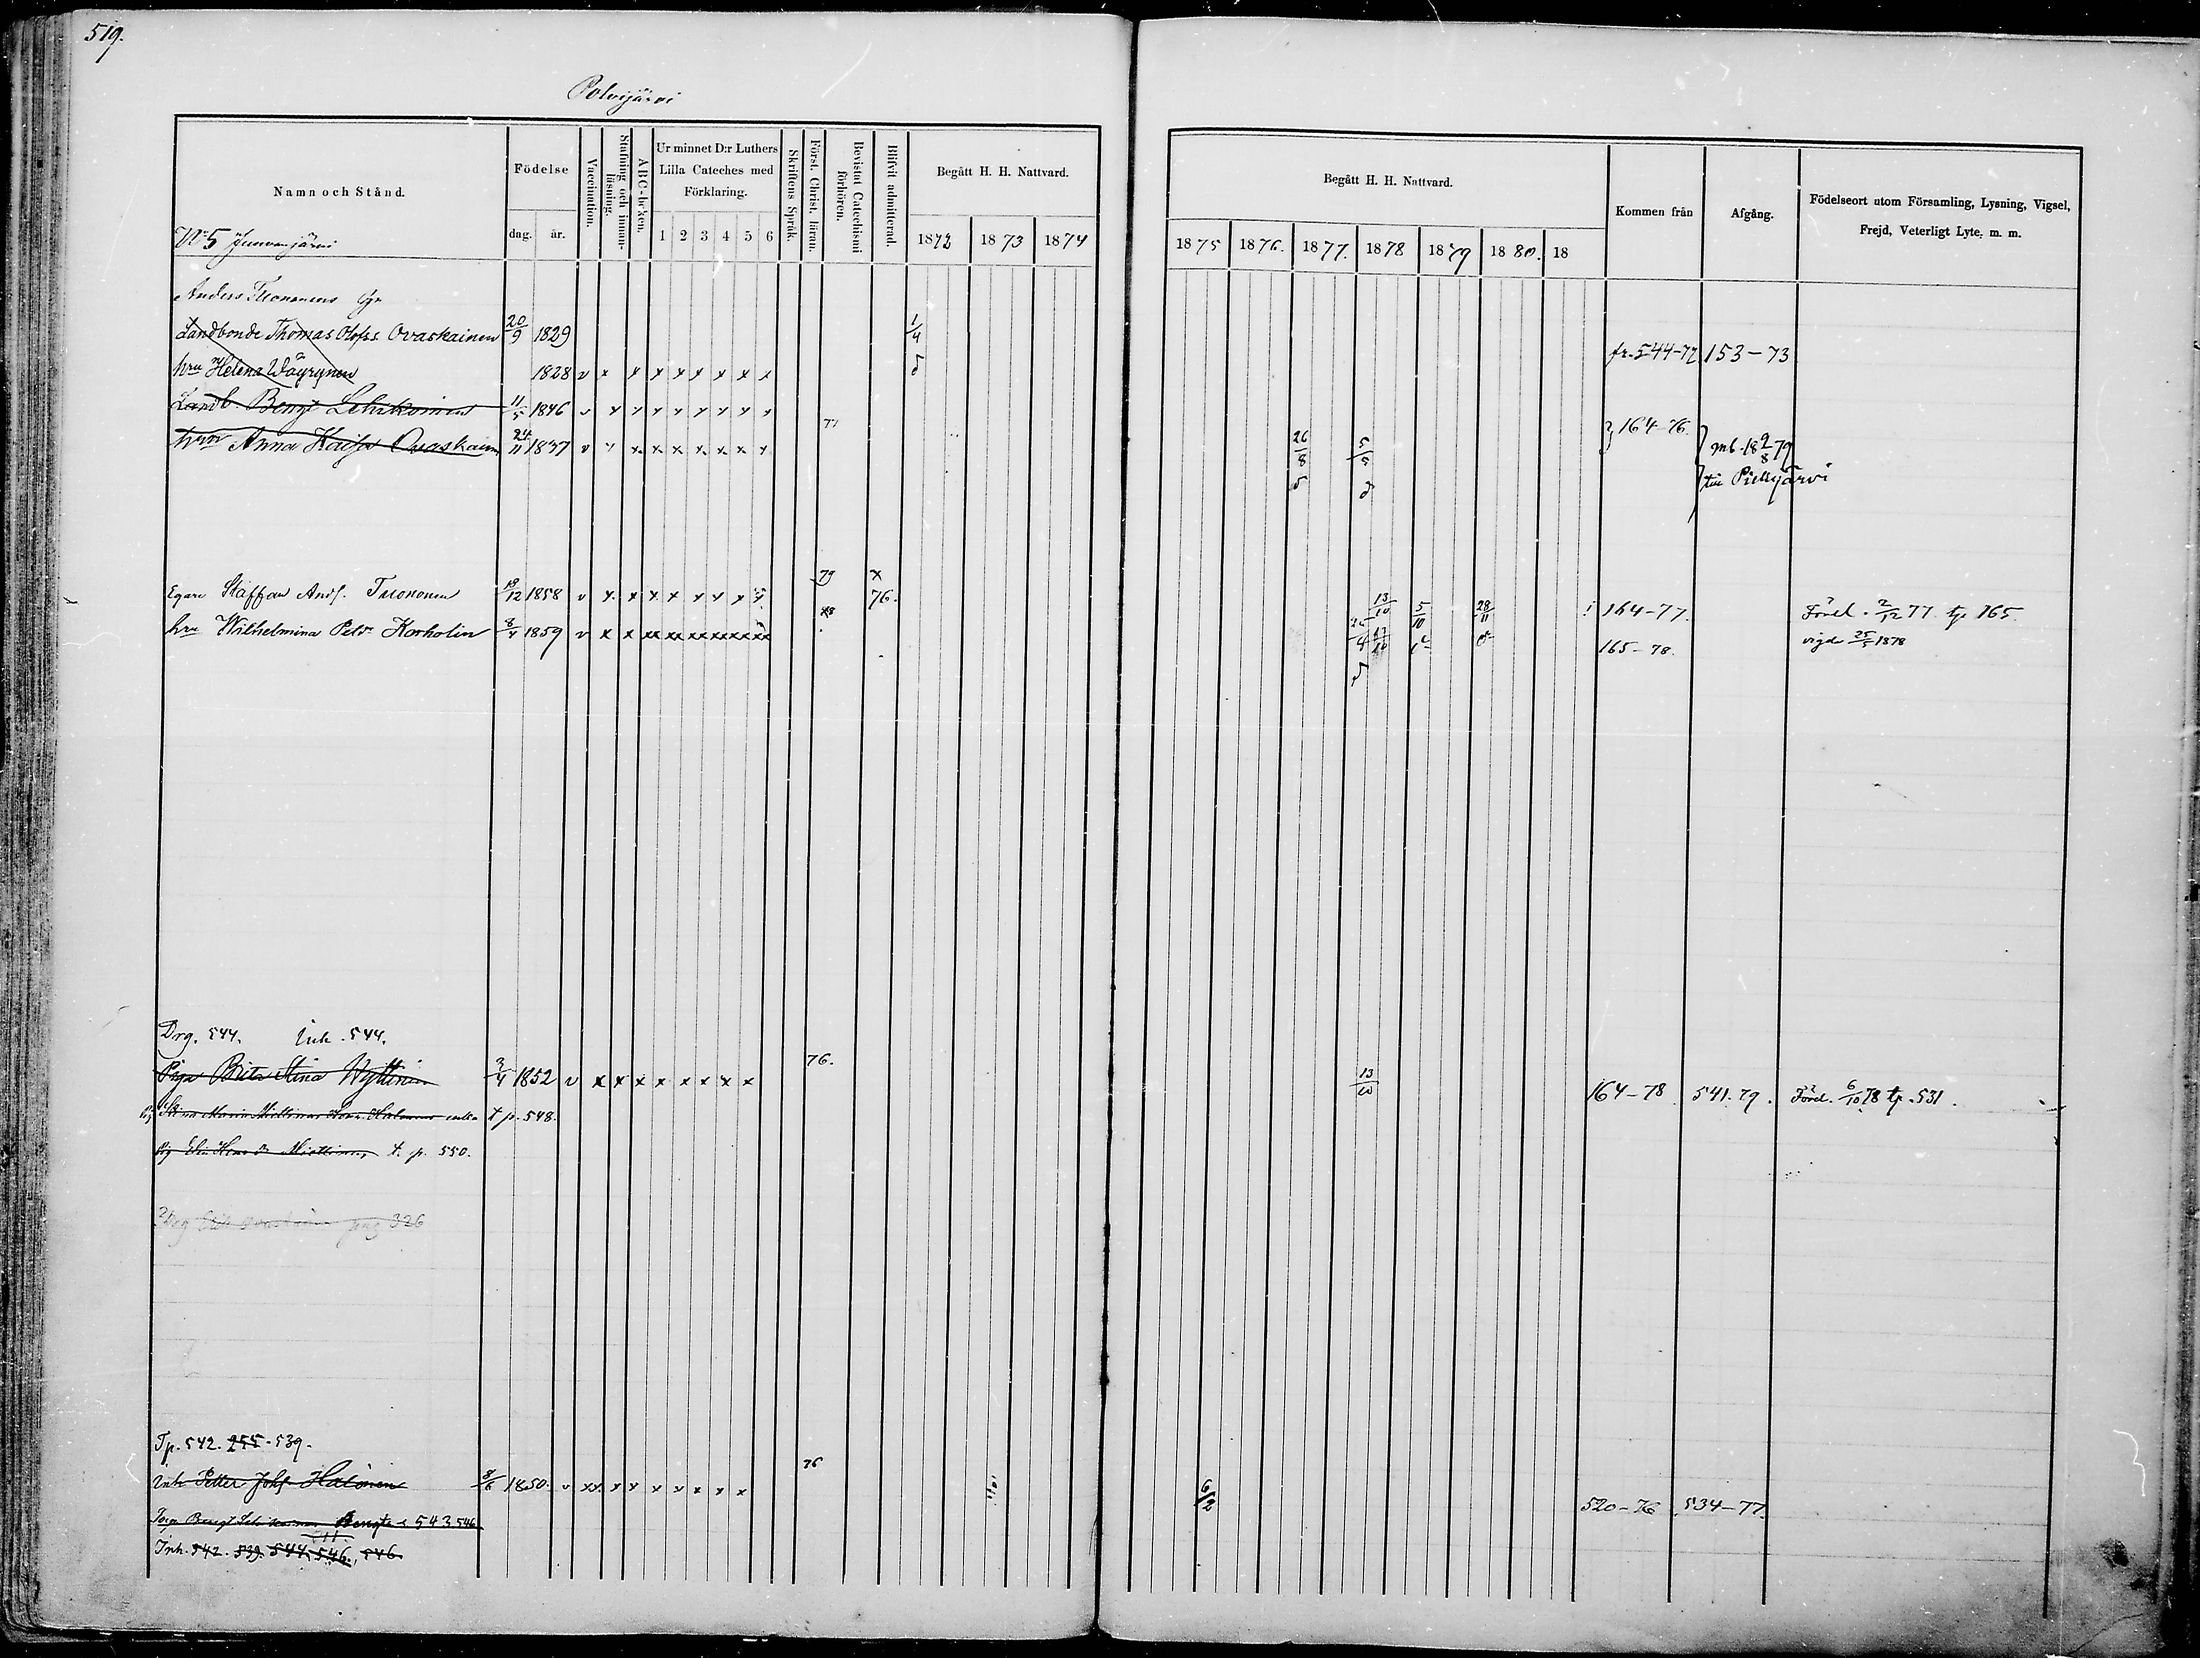 519.
Polvijärvi
Namn och Stånd.
Födelse
dag.
år.
Vaccination.
Stafning och innanläsning.
ABC-boken.
Ur minnet D:r Luthers Lilla Cateches med Förklaring.
1 2 3 4 5 6
Skriftens Språk.
Först. Christ. läran.
Bevistat Catechismi förhören.
Blifvit admitterad.
Begått H. H. Nattvard.
1872 1873 1874
Begått H. H. Nattvard.
1875 1876. 1877. 1878 1879 1880. 18
Kommen från
Afgång.
Födelseort utom Församling, Lysning, Vigsel,
Frejd, Veterligt Lyte, m. m.
No 5
Anders Tuononens
Landbonde Thomas Olofss. Ovaskainen 20/9 1829 1/4 fr. 544-72 153-73
hru Helena Wäyrynen 1828 v x x x x x x x x
Landb. Bengt Lehikoinen 11/5 1846 v x x x x x x x x 77 164-76.
hru Anna Kaisa Ovaskain 24/11 1837 v x x x x x x x x 26/8 5/5 mb. 18 2/8 79
till Pielisjärvi
Egare Staffan Ands. Tuononen 19/12 1858 v x x x x x x x 79 x 76. 13/10 5/10 28/11 164-77. Förel. 2/12 77. tp 165.
hru Wilhelmina Petd. Korholin 8/4 1859 v x x xx xx xx xx xx xx 165-78. vigd 25/5 1878
Drg. 544. Inh. 544.
Piga Brita Stina Hyttinen 3/4 1852 v x x x x x x x x 76. 13/10 164-78 541.79. Förel. 6/10 78 tp. 531.
Stina Maria Miettinen enka t p. 548.
t. p. 550.
326
Tp. 542. 255. 539.
Inh Petter Johs. Halonen 3/6 1850. v xx x x x x x x x 76 6/2 520-76 534-77.
Bengt 543 546
Inh. 542. 539. 544. 546. 546.